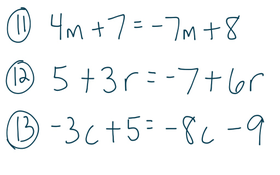 11 4m+7=-7m+8
12 5+3r=-7+6r
13 -3c+5=-8c-9